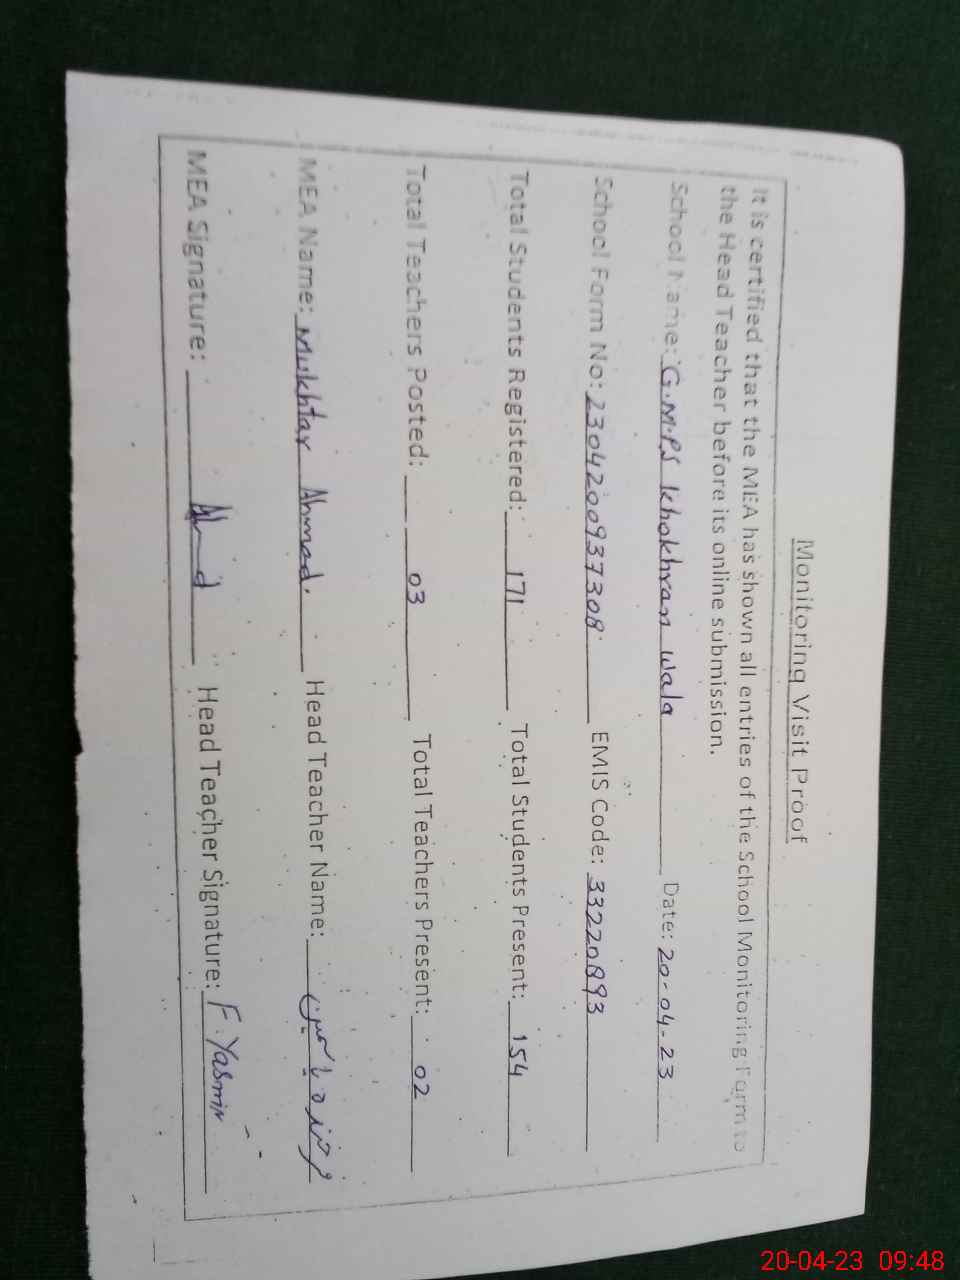 Monitoring Visit Proof
It is certified that the MEA has shown all entries of the School Monitoring Form to
the Head Teacher before its online submission.
School Name: G.M.P.S Khokhran wala Date: 20-04-23
School Form No: 2304200937308 EMIS Code: 33220893
Total Students Registered: 171 Total Students Present: 154
Total Teachers Posted: 03 Total Teachers Present: 02
MEA Name: Mukhtar Ahmad. Head Teacher Name: یاسمین
MEA Signature: Head Teacher Signature: F. Yasmin
20-04-23 09:48